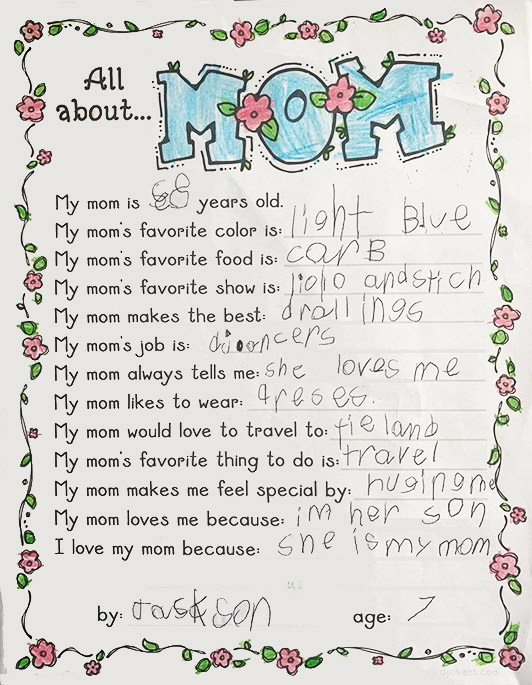 All
about... MOM
My mom is 68 years old.
My mom's favorite color is: light Blue
My mom's favorite food is: carB
My mom's favorite show is: liolo andstich
My mom makes the best: drallings
My mom's job is:
My mom always tells me: she loves me
My mom likes to wear: dreses.
My mom would love to travel to: tieland
My mom's favorite thing to do is: travel
My mom makes me feel special by: hugingme
My mom loves me because: im her son
I love my mom because: she is my mom
by: Jackson age: 7